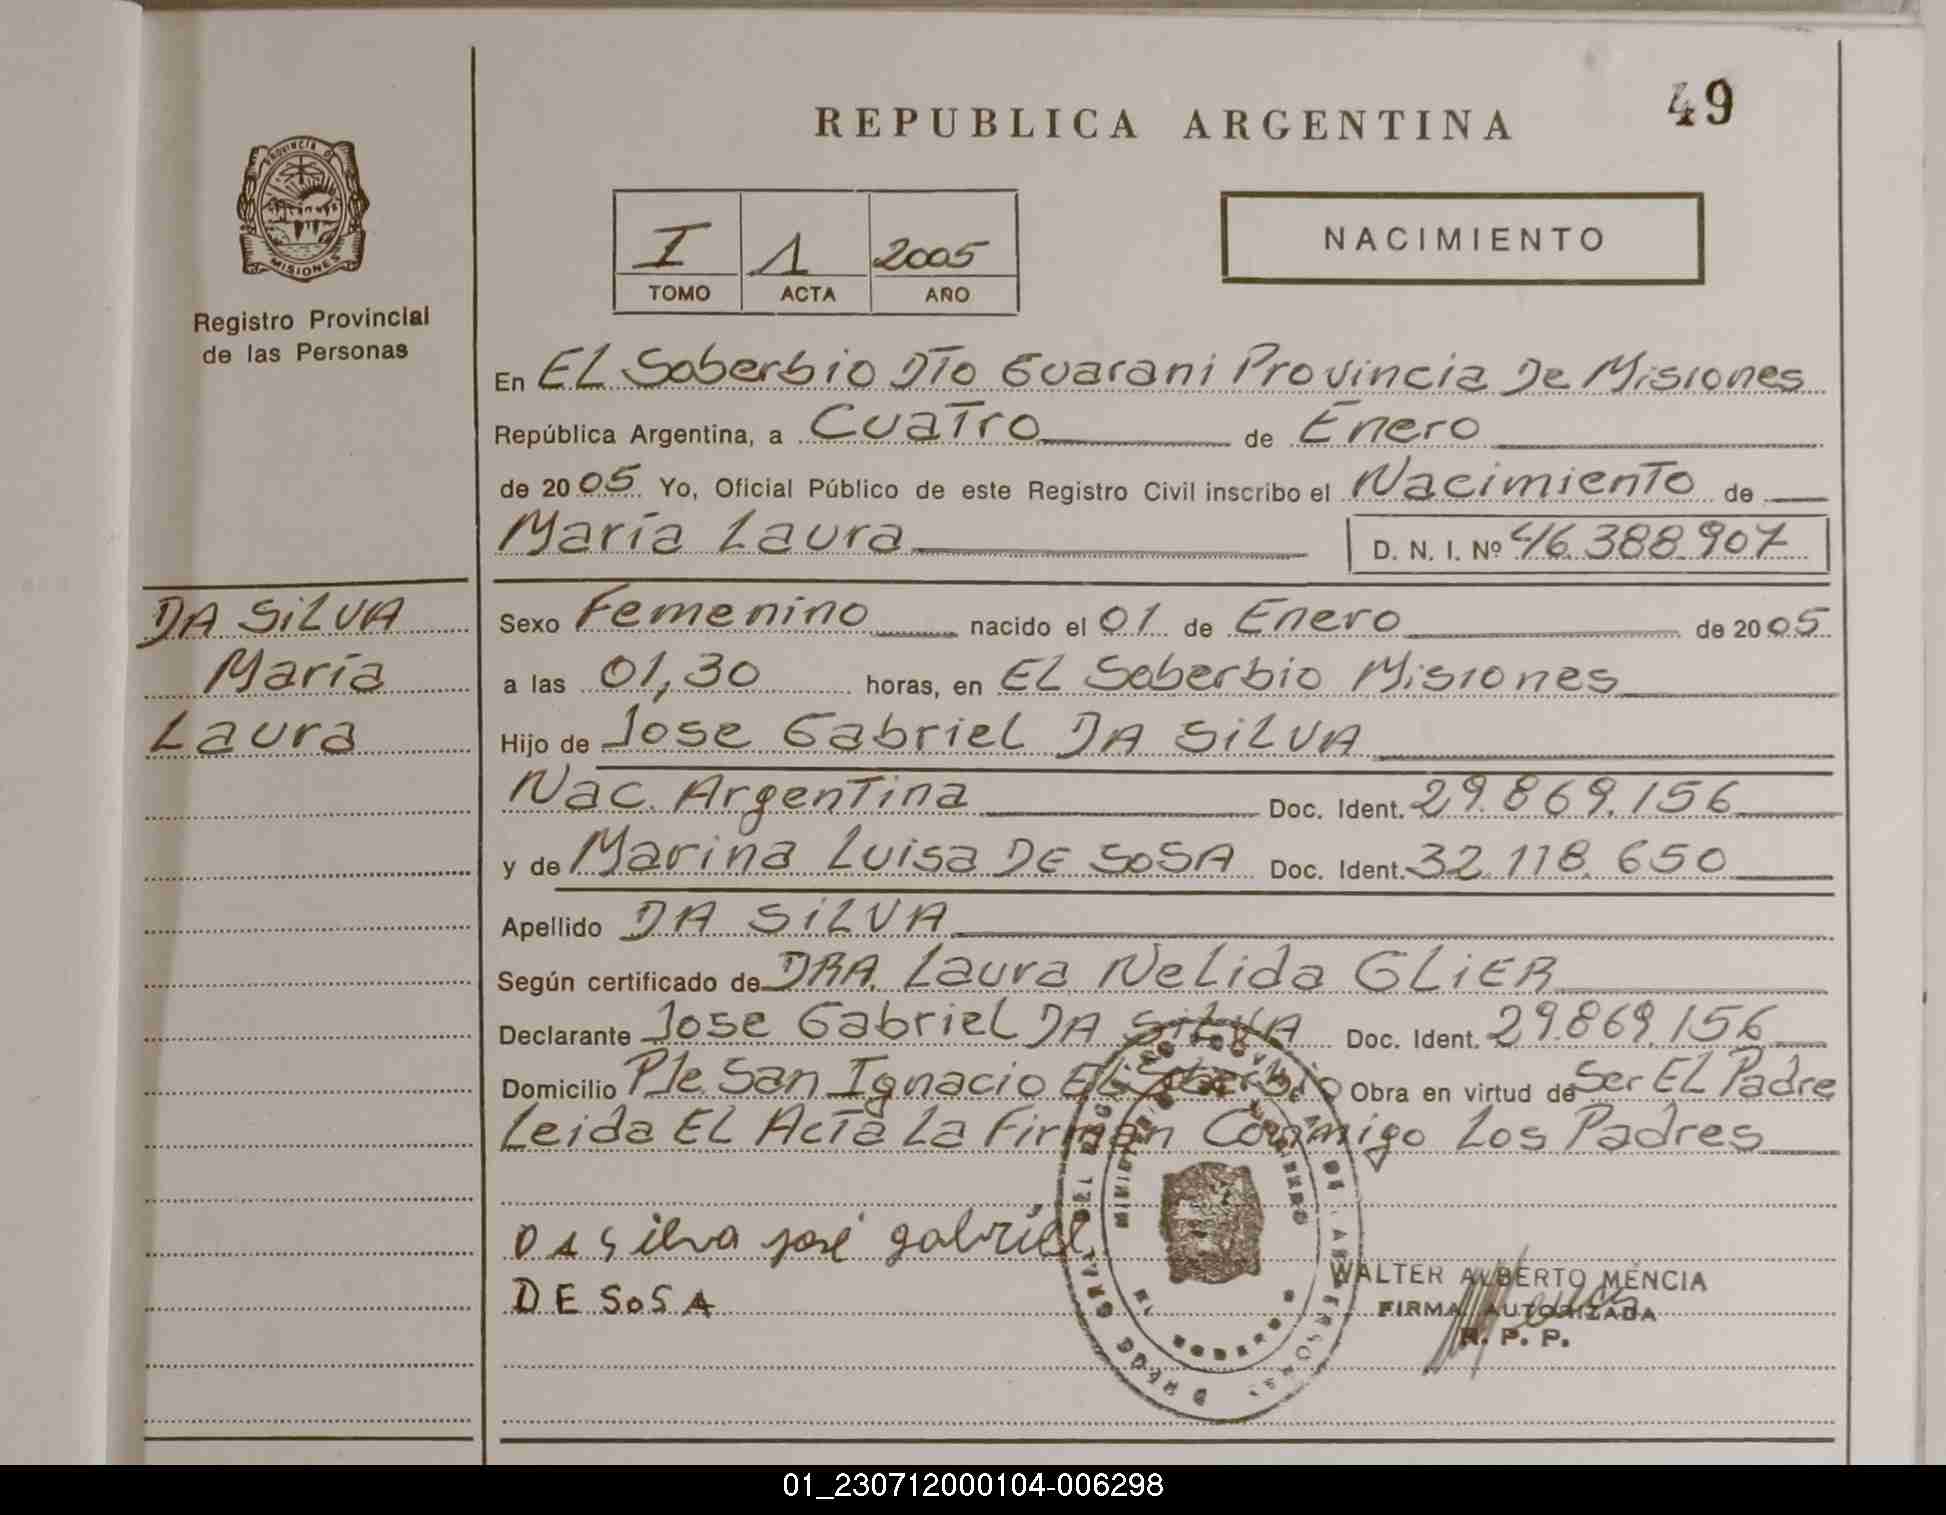 49
REPUBLICA ARGENTINA
PROVINCIA DE
MISIONES
Registro Provincial
de las Personas
I 1 2005
TOMO ACTA AÑO
NACIMIENTO
En EL Soberbio DTo Guarani Provincia De Misiones
República Argentina, a Cuatro de Enero
de 2005 Yo, Oficial Público de este Registro Civil inscribo el Nacimiento de
María Laura D. N. I. Nº 46.388.907
DA SiLVA
María
Laura
Sexo Femenino nacido el 01 de Enero de 2005
a las 01,30 horas, en EL Soberbio Misiones
Hijo de Jose Gabriel DA SiLVA
Nac. Argentina Doc. Ident. 29.869.156
y de Marina Luisa DE SoSA Doc. Ident. 32.118.650
Apellido DA SiLVA
Según certificado de DRA. Laura Nelida GLiER
Declarante Jose Gabriel DA SiLVA Doc. Ident. 29.869.156
Domicilio Pje San Ignacio EL Soberbio Obra en virtud de Ser EL Padre
Leida EL Acta La Firman Conmigo Los Padres
DA Silva josé gabriel
DE SoSA
WALTER ALBERTO MENCIA
FIRMA AUTORIZADA
R. P. P.
01_230712000104-006298